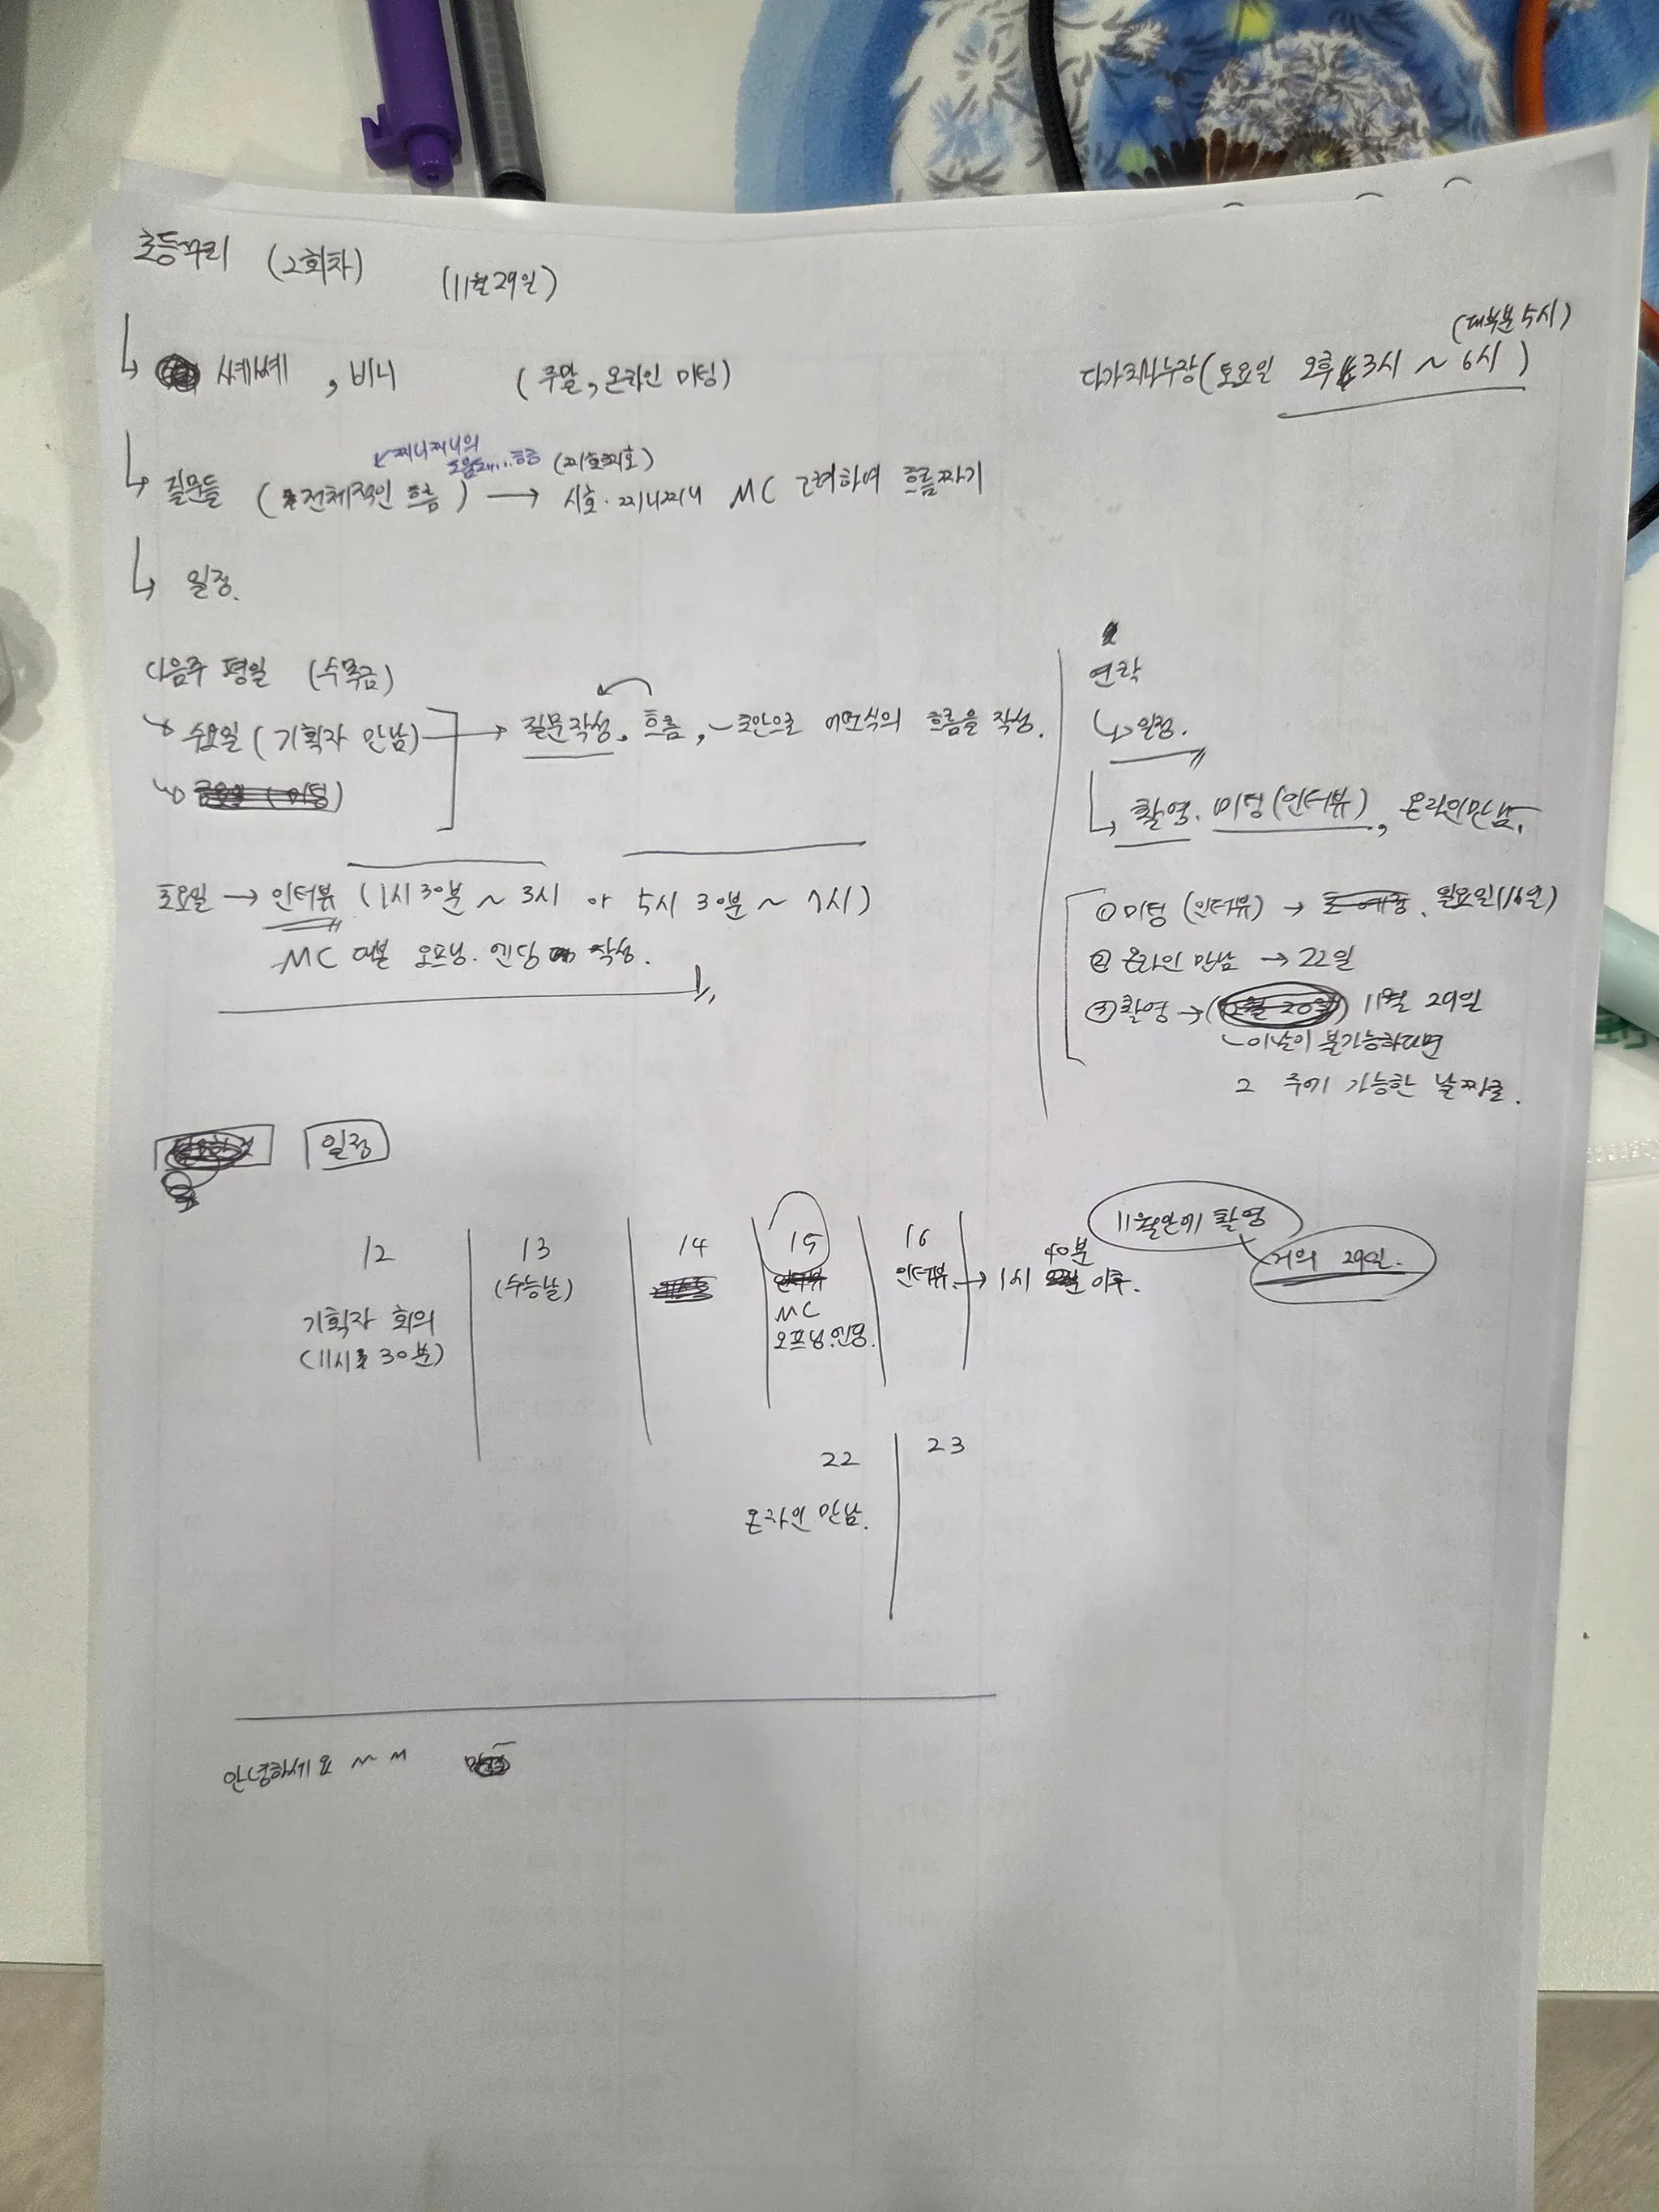 초등꾸리 (2회차) (11월 29일)
(대부분 5시)
셰셰, 비니 (주말, 온라인 미팅)
다가치나누장(토요일 오후 3시 ~ 6시)
찌니찌니의
도움... 흐름 (찌호찌호)
질문들 (전체적인 흐름) → 시호·찌니찌니 MC 고려하여 흐름짜기
일정.
다음주 평일 (수목금)
수요일 (기획자 만남) → 질문작성, 흐름, ~초안으로 어떤식의 흐름을 작성.
금요일 (미팅)
토요일 → 인터뷰 (1시 30분 ~ 3시 or 5시 30분 ~ 7시)
MC 대본 오프닝. 엔딩 작성.
연락
일정.
촬영. 미팅(인터뷰), 온라인만남.
① 미팅 (인터뷰) → 월요일(16일)
② 온라인 만남 → 22일
③ 촬영 → (12월 20일) 11월 29일
~이날이 불가능하다면
그 주에 가능한 날짜로.
일정
11월안에 촬영
거의 29일.
12
기획자 회의
(11시 30분)
13
(수능날)
14
15
인터뷰
MC
오프닝.엔딩.
16
인터뷰 → 1시 40분 이후.
22
온라인 만남.
23
안녕하세요 ~ ~